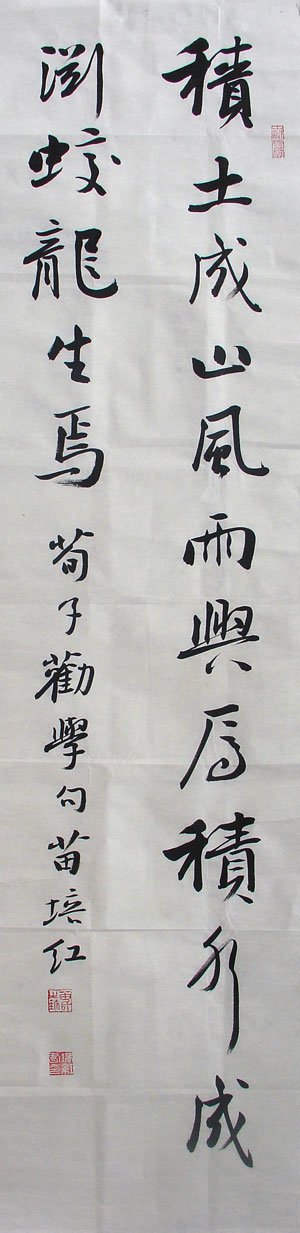 積土成山風雨興焉積水成
渊蛟龍生焉 荀子勸學句苗培红